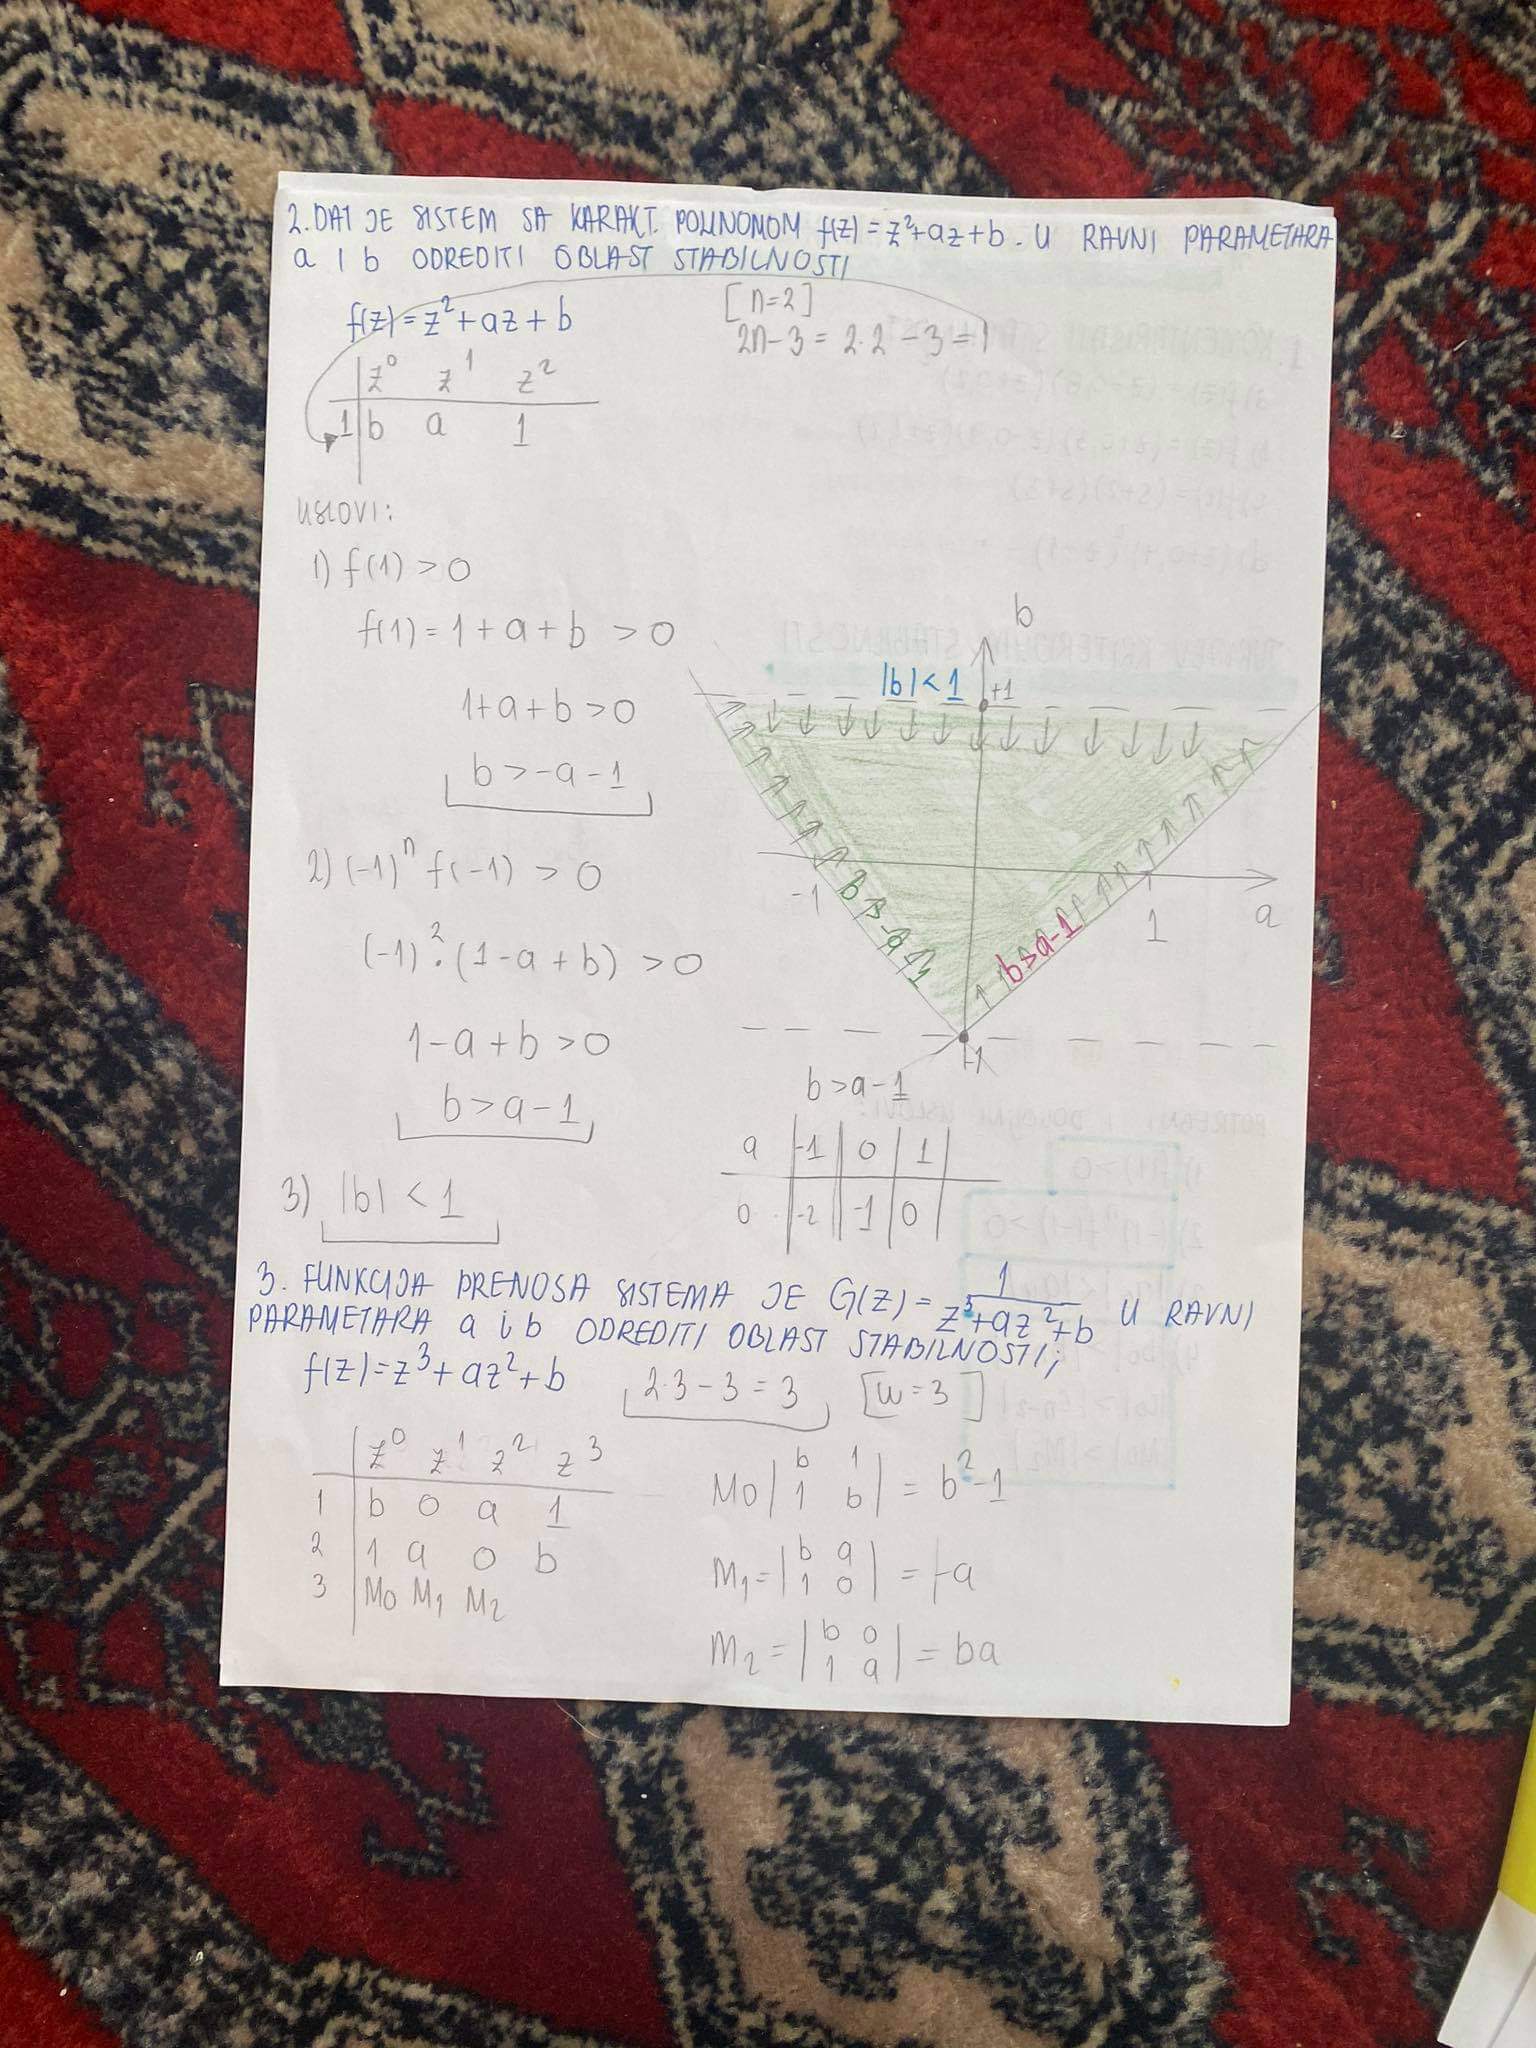 2. DAT JE SISTEM SA KARAKT. POLINOMOM f(z) = z²+az+b. U RAVNI PARAMETARA
a I b ODREDITI OBLAST STABILNOSTI
f(z) = z² + az + b
[n=2]
2n-3 = 2·2 - 3 = 1
z⁰ z¹ z²
1 b a 1
USLOVI:
1) f(1) > 0
f(1) = 1 + a + b > 0
1+a+b > 0
b > -a - 1
2) (-1)ⁿ f(-1) > 0
(-1)² · (1 - a + b) > 0
1 - a + b > 0
b > a - 1
3) |b| < 1
b
|b| < 1
+1
-1
1
a
b > -a - 1
b > a-1
-1
b > a-1
a -1 0 1
0 -2 -1 0
3. FUNKCIJA PRENOSA SISTEMA JE G(z) = 1/(z³+az²+b) U RAVNI
PARAMETARA a i b ODREDITI OBLAST STABILNOSTI;
f(z) = z³ + az² + b
2·3 - 3 = 3
[n = 3]
z⁰ z¹ z² z³
1 b 0 a 1
2 1 a 0 b
3 M0 M1 M2
M0 |b 1| = b² - 1
|1 b|
M1 = |b a| = -a
|1 0|
M2 = |b 0| = ba
|1 a|